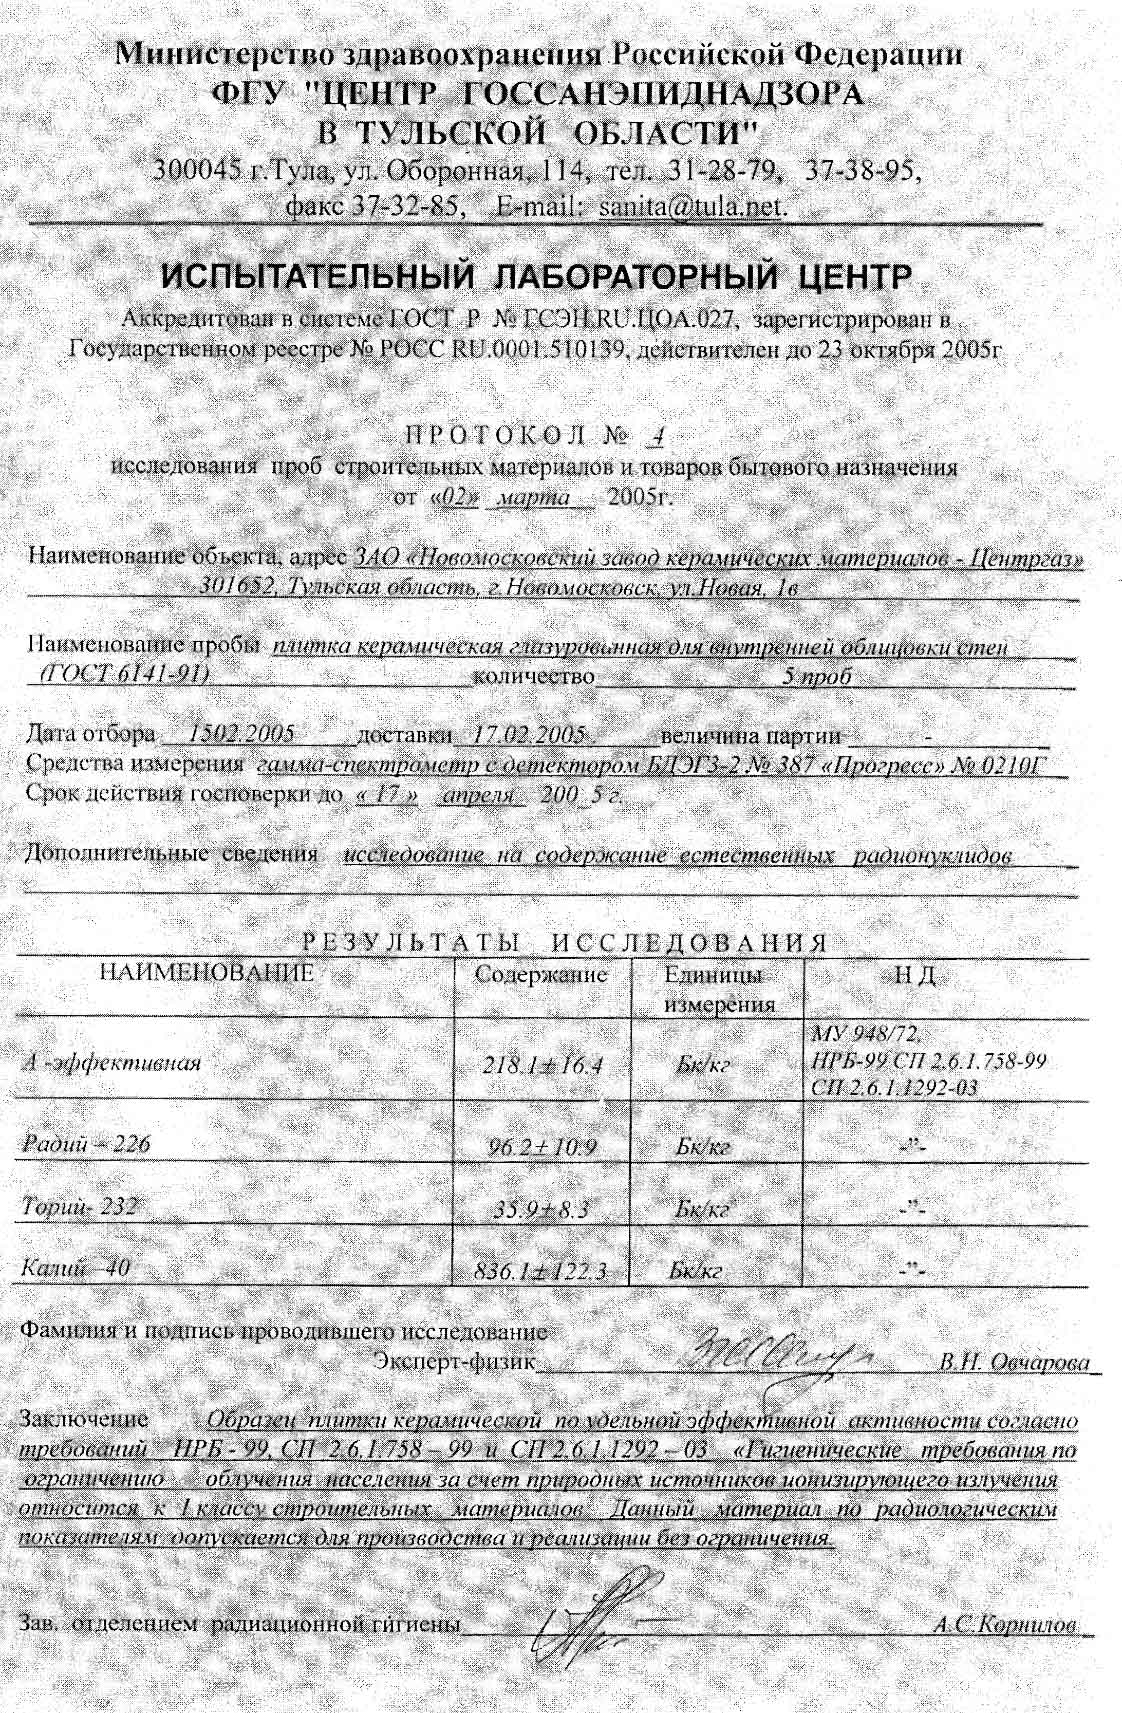 Министерство здравоохранения Российской Федерации
ФГУ "ЦЕНТР ГОССАНЭПИДНАДЗОРА
В ТУЛЬСКОЙ ОБЛАСТИ"
300045 г.Тула, ул. Оборонная, 114, тел. 31-28-79, 37-38-95,
факс 37-32-85, E-mail: sanita@tula.net.
ИСПЫТАТЕЛЬНЫЙ ЛАБОРАТОРНЫЙ ЦЕНТР
Аккредитован в системе ГОСТ Р № ГСЭН.RU.ЦОА.027, зарегистрирован в
Государственном реестре № РОСС RU.0001.510139, действителен до 23 октября 2005г
ПРОТОКОЛ № 4
исследования проб строительных материалов и товаров бытового назначения
от «02» марта 2005г.
Наименование объекта, адрес ЗАО «Новомосковский завод керамических материалов - Центргаз»
301652, Тульская область, г.Новомосковск, ул.Новая, 1в
Наименование пробы плитка керамическая глазурованная для внутренней облицовки стен
(ГОСТ 6141-91) количество 5 проб
Дата отбора 1502.2005 доставки 17.02.2005 . величина партии -
Средства измерения гамма-спектрометр с детектором БДЭГЗ-2 № 387 «Прогресс» № 0210Г
Срок действия госповерки до « 17 » апреля 200 5 г.
Дополнительные сведения исследование на содержание естественных радионуклидов
РЕЗУЛЬТАТЫ ИССЛЕДОВАНИЯ
НАИМЕНОВАНИЕ Содержание Единицы измерения Н Д
А -эффективная 218.1±16.4 Бк/кг МУ 948/72, НРБ-99 СП 2.6.1.758-99 СП 2.6.1.1292-03
Радий – 226 96.2±10.9 Бк/кг -”-
Торий- 232 35.9±8.3 Бк/кг -”-
Калий –40 836.1±122.3 Бк/кг -”-
Фамилия и подпись проводившего исследование
Эксперт-физик В.Н. Овчарова
Заключение Образец плитки керамической по удельной эффективной активности согласно
требований НРБ - 99, СП 2.6.1.758 – 99 и СП 2.6.1.1292 – 03 «Гигиенические требования по
ограничению облучения населения за счет природных источников ионизирующего излучения
относится к I классу строительных материалов Данный материал по радиологическим
показателям допускается для производства и реализации без ограничения.
Зав. отделением радиационной гигиены А.С.Корнилов